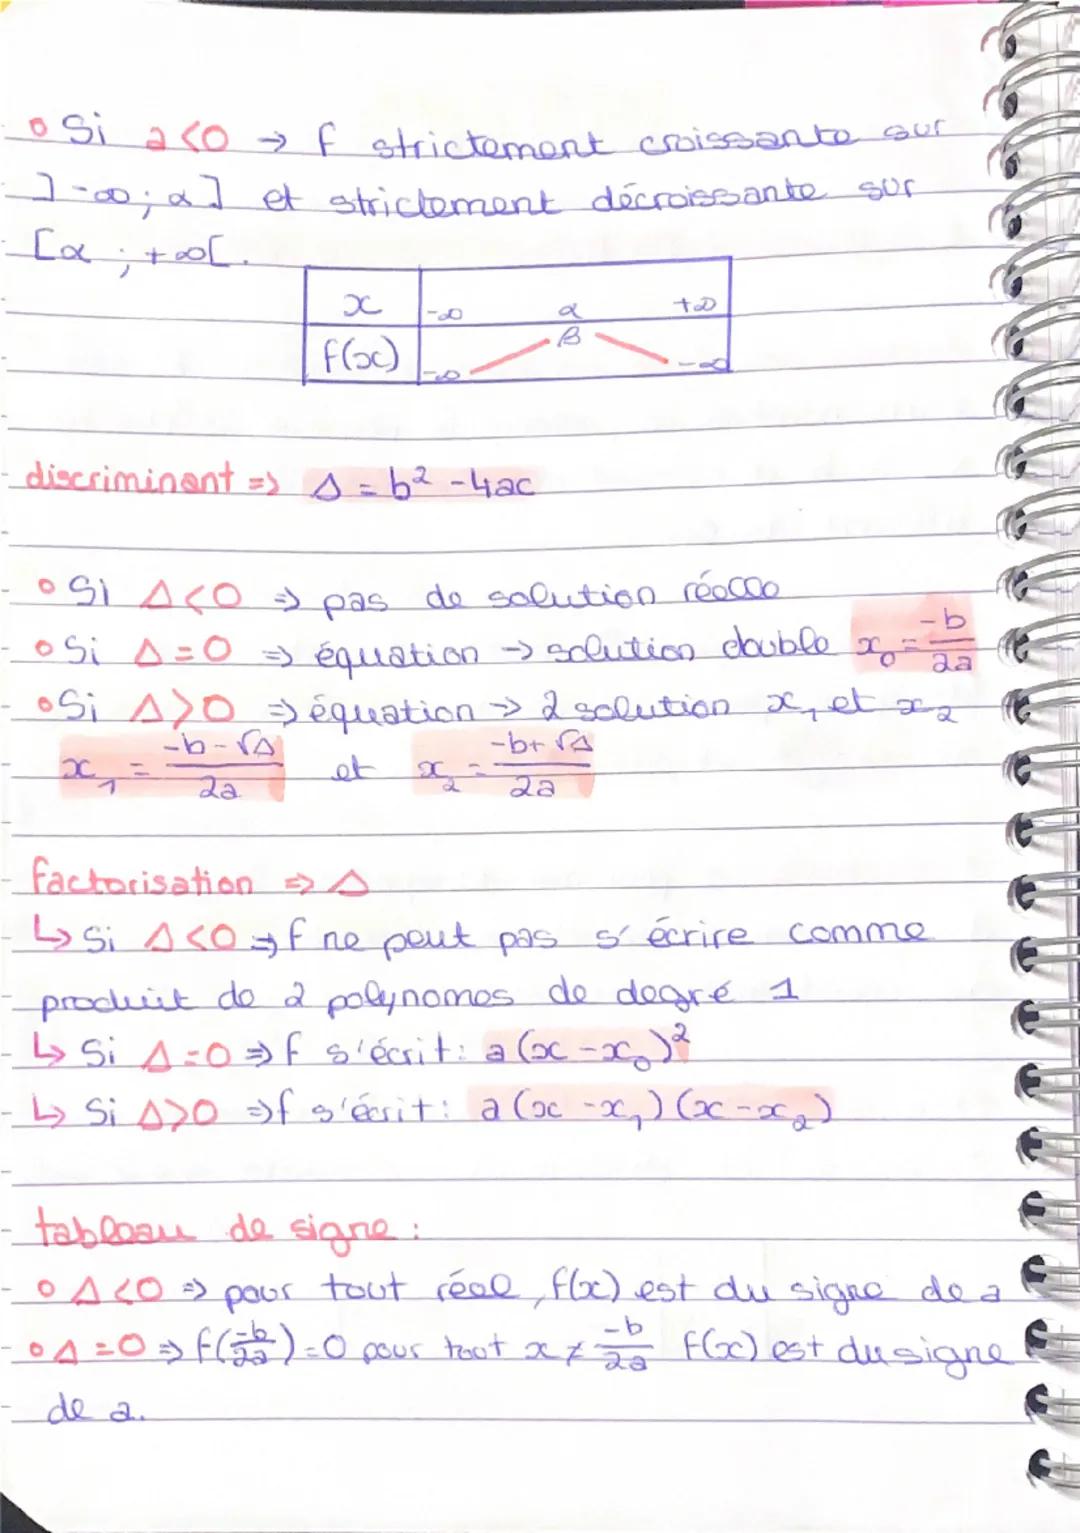 ° Si a<0 → f strictement croissante sur
]-∞; α] et strictement décroissante sur
[α ; +∞[.
x -∞ α +∞
f(x) -∞ β -∞
discriminant => Δ = b² - 4ac
° Si Δ<0 => pas de solution réelle
° Si Δ=0 => équation → solution double x₀ = -b/2a
° Si Δ>0 => équation → 2 solution x₁ et x₂
x₁ = -b-√Δ/2a et x₂ = -b+√Δ/2a
factorisation => Δ
↳ Si Δ<0 => f ne peut pas s'écrire comme
produit de 2 polynomes de degré 1
↳ Si Δ=0 => f s'écrit: a(x-x₀)²
↳ Si Δ>0 => f s'écrit: a(x-x₁)(x-x₂)
tableau de signe :
° Δ<0 => pour tout réel, f(x) est du signe de a
° Δ=0 => f(-b/2a)=0 pour tout x≠ -b/2a f(x) est du signe
de a.